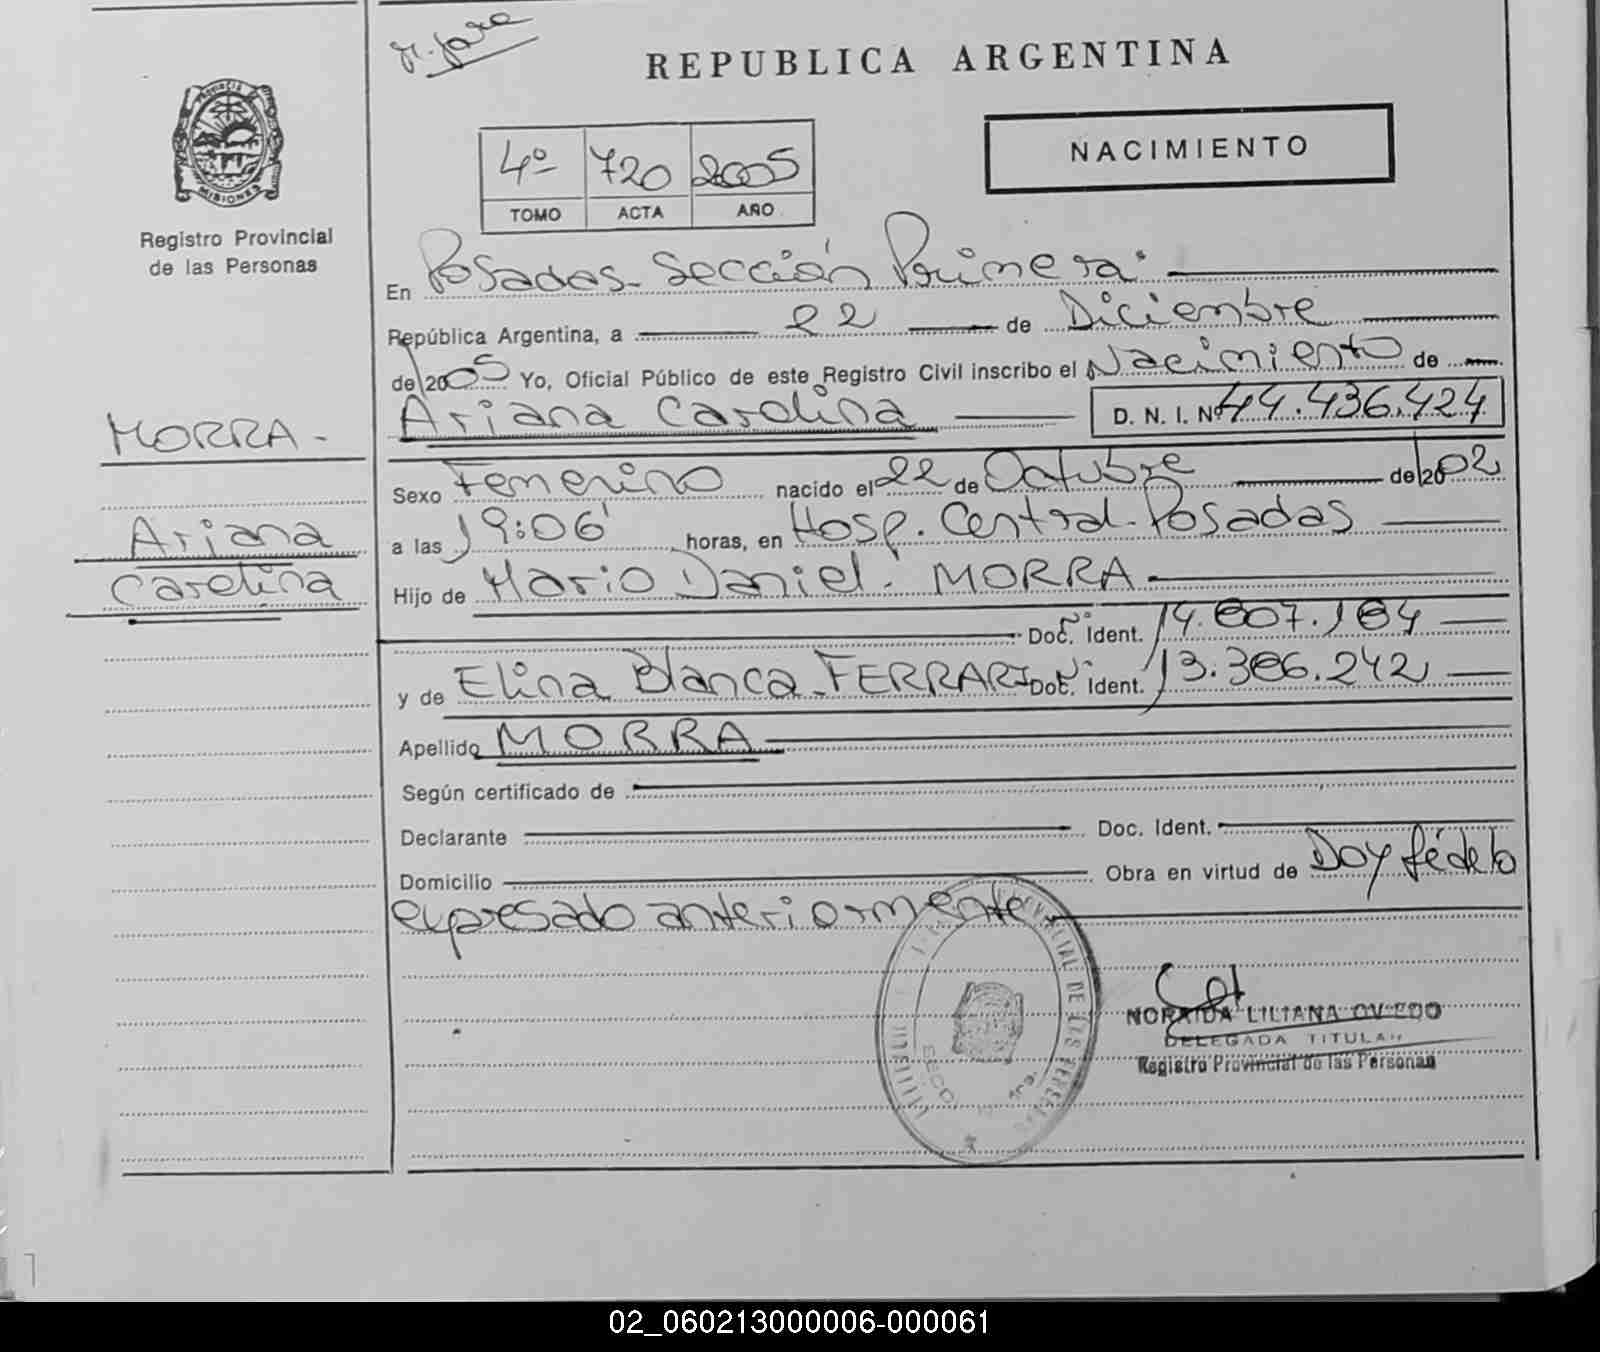 REPUBLICA ARGENTINA
PROVINCIA DE
MISIONES
Registro Provincial
de las Personas
4º 720 2005
TOMO ACTA AÑO
NACIMIENTO
En Posadas - Sección Primera
República Argentina, a 22 de Diciembre
de 2005 Yo, Oficial Público de este Registro Civil inscribo el Nacimiento de
Ariana Carolina D. N. I. Nº 44.436.424
MORRA -
Ariana
Carolina
Sexo Femenino nacido el 22 de Octubre de 2002
a las 19:06' horas, en Hosp. Central - Posadas
Hijo de Mario Daniel MORRA
Doc. Ident. 14.607.184
y de Elina Blanca FERRARI Doc. Ident. 13.386.242
Apellido MORRA
Según certificado de
Declarante Doc. Ident.
Domicilio Obra en virtud de Doy fé de lo
expresado anteriormente
NORAIDA LILIANA OVIEDO
DELEGADA TITULAR
Registro Provincial de las Personas
02_060213000006-000061